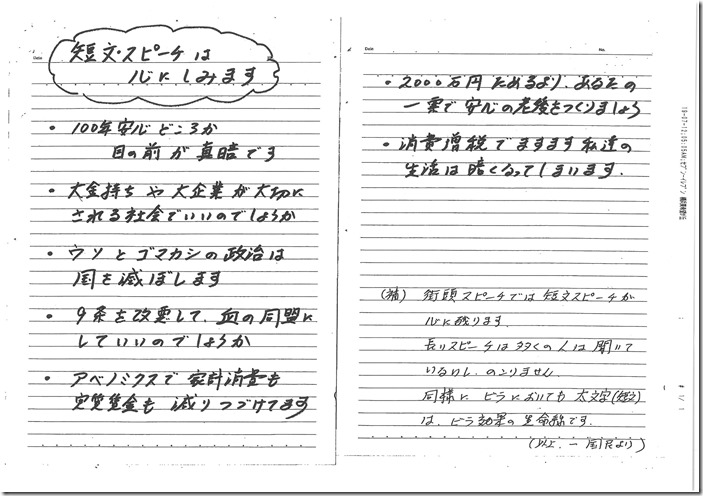 Date
短文・スピーチは
心にしみます
・ 100年安心どころか
目の前が真暗です
・ 大金持ちや大企業が大切に
される社会でいいのでしょうか
・ ウソとゴマカシの政治は
国を滅ぼします
・ 9条を改悪して、血の同盟に
していいのでしょうか
・ アベノミクスで家計消費も
実質賃金も減りつづけてます
Date
No.
・ 2000万円ためるより、あなたの
一票で安心の老後をつくりましょう
・ 消費増税でますます私達の
生活は暗くなってしまいます.
(補) 街頭スピーチでは短文スピーチが
心に残ります.
長いスピーチは多くの人は聞いて
いないし、のこりません.
同様に ビラにおいても 太文字(短文)
は、ビラ効果の生命線です.
(以上. 一国民より)
# 1/ 1